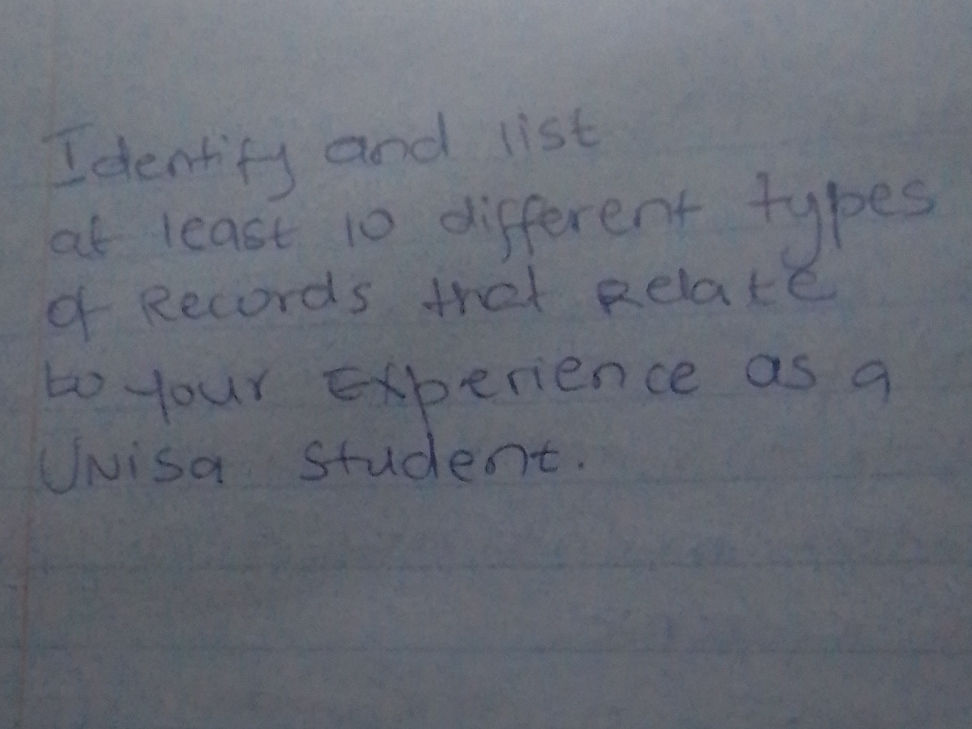 Identify and list
at least 10 different types
of Records that Relate
to your Experience as a
UNisa student.